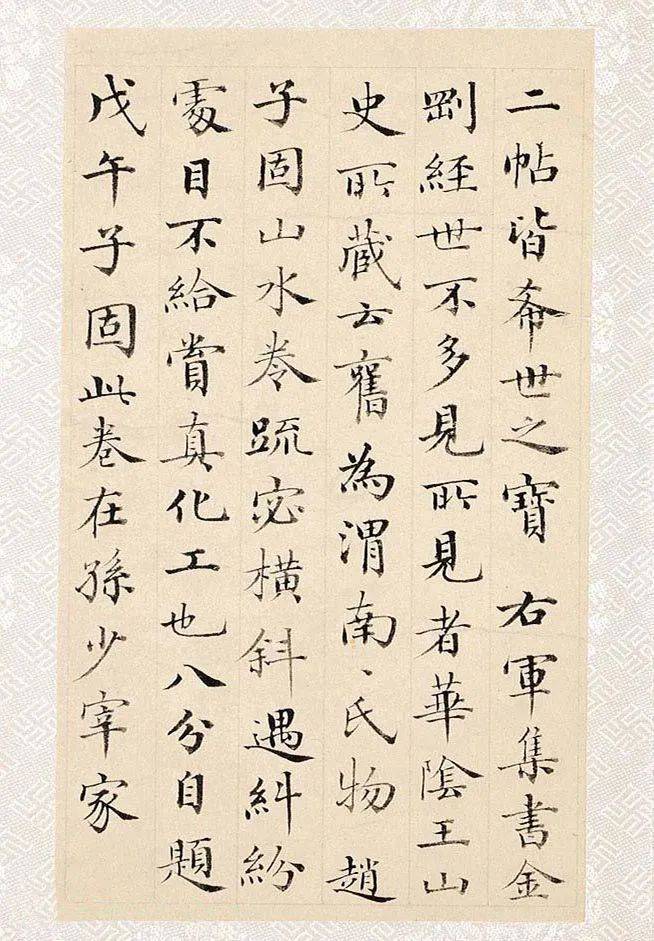 二帖皆希世之寶 右軍集書金
剛經世不多見所見者華陰王山
史所藏云舊為渭南、氏物 趙
子固山水卷疏密橫斜遇糾紛
處目不給賞真化工也八分自題
戊午子固此卷在孫少宰家